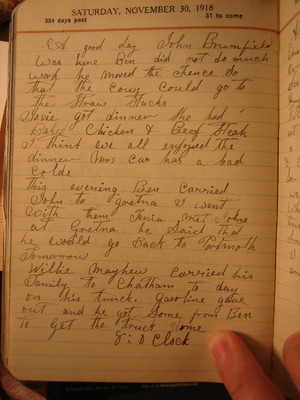 SATURDAY, NOVEMBER 30, 1918
334 days past 31 to come
A good day John Brumfield
was here Ben did not do much
work he moved the Fence so
that the Cows could go to
the Straw Stacks
Josie got dinner She had
baked Chicken & Beef Steak
I think we all enjoyed the
dinner Mrs Car has a bad
Colde
This evening Ben Carried
John to Gretna I went
With them Tenia met John
at Gretna he Said that
he would go back to Portmoth
Tomorrow
Willie Mayhew Carried his
Family to Chatham to day
on his truck. Gasoline gave
out and he got Some from Ben
to get the truck Home
O Clock